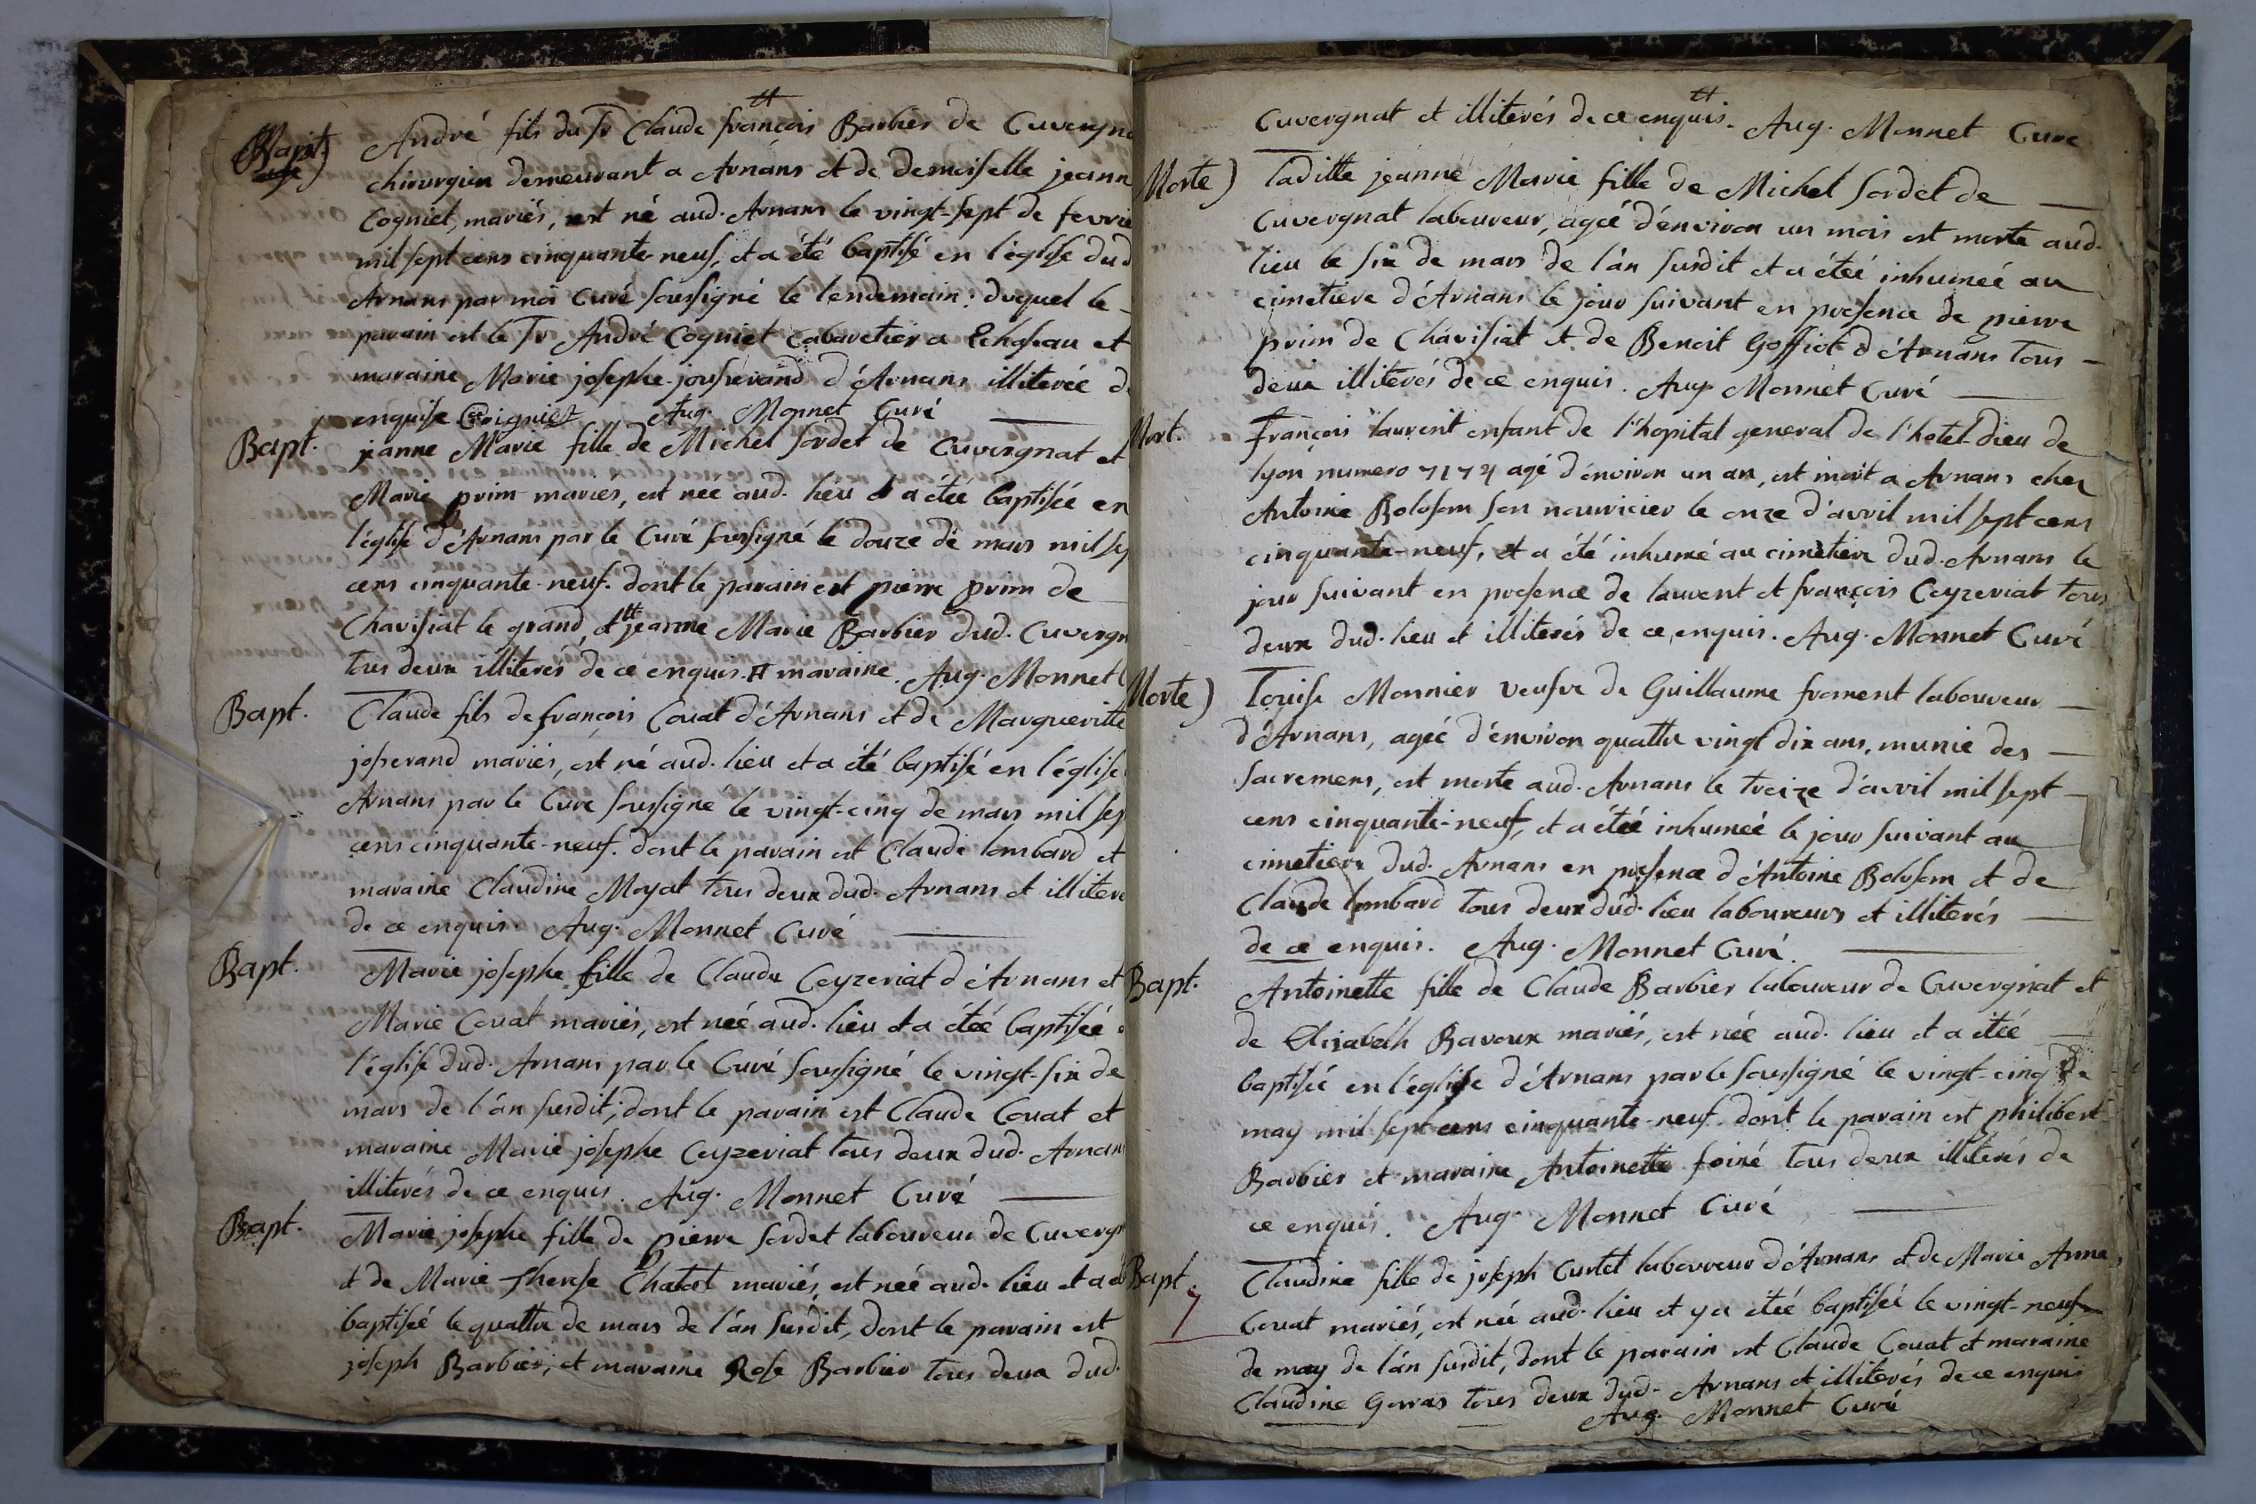 Bapt.
André fils du Sr Claude françois Barbier de Cuvergna
chirurgien demeurant a Arnans et de demoiselle jeann
Cogniet, mariés, est né aud. Arnans le vingt-sept de fevrie
mil sept cens cinquante-neuf, et a été baptisé en l'église dud
Arnans par moi Curé soussigné le lendemain: duquel le
parain est le Sr André Cogniet Cabaretier a et
maraine Marie josephe jousserand d'Arnans illiterée d
enquise Coigniet Aug. Monnet Curé
Bapt.
jeanne Marie fille de Michel Sordet de Cuvergnat et
Marie prim mariés, est née aud. lieu et a étée baptisée en
l'église d'Arnans par le Curé soussigné le douze de mars mil sep
cens cinquante-neuf. dont le parain est pierre prim de
Chavisiat le grand, et # jeanne Marie Barbier dud. Cuvergn
tous deux illiterés de ce enquis. # maraine. Aug. Monnet C
Bapt.
Claude fils de françois Couat d'Arnans et de Margueritte
josserand mariés, est né aud. lieu et a été baptisé en l'église
Arnans par le Curé soussigné le vingt-cinq de mars mil sep
cens cinquante-neuf. dont le parain est Claude lombard et
maraine Claudine Moyat tous deux dud. Arnans et illiteré
de ce enquis. Aug. Monnet Curé
Bapt.
Marie josephe fille de Claude Ceyzeriat d'Arnans et
Marie Couat mariés, est née aud. lieu et a étée baptisée
l'église dud. Arnans par le Curé soussigné le vingt-six de
mars de l'an susdit; dont le parain est Claude Couat et
maraine Marie josephe Ceyzeriat tous deux dud. Arnans
illiterés de ce enquis. Aug. Monnet Curé
Bapt.
Marie josephe fille de pierre Sordet laboureur de Cuvergn
et de Marie Therese Chatot mariés, est née aud. lieu et a é
baptisée le quattre de mars de l'an susdit, dont le parain est
joseph Barbier, et maraine Rose Barbier tous deux dud.
Cuvergnat et illiterés de ce enquis. Aug. Monnet Curé
Morte)
Laditte jeanne Marie fille de Michel Sordet de
Cuvergnat laboureur, agée d'environ un mois est morte aud.
lieu le six de mars de l'an susdit et a étée inhumée au
cimetiere d'Arnans le jour suivant en presence de pierre
prim de Chavisiat et de Benoit Goffiot d'Arnans tous
deux illiterés de ce enquis. Aug. Monnet Curé
Mort.
françois laurent enfant de l'hopital general de l'hotel-dieu de
lyon numero 7174 agé d'environ un an, est mort a Arnans chez
Antoine Bolosom son nouricier le onze d'avril mil sept cens
cinquante-neuf, et a été inhumé au cimetiere dud. Arnans le
jour suivant en presence de laurent et françois Ceyzeriat tous
deux dud. lieu et illiterés de ce enquis. Aug. Monnet Curé
Morte)
Louise Monnier veufve de Guillaume froment laboureur
d'Arnans, agée d'environ quattre vingt dix ans, munie des
sacremens, est morte aud. Arnans le treize d'avril mil sept
cens cinquante-neuf, et a étée inhumée le jour suivant au
cimetiere dud. Arnans en presence d'Antoine Bolosom et de
Claude lombard tous deux dud. lieu laboureurs et illiterés
de ce enquis. Aug. Monnet Curé.
Bapt.
Antoinette fille de Claude Barbier laboureur de Cuvergnat et
de Elizabeth Bavoux mariés, est née aud. lieu et a étée
baptisée en l'église d'Arnans par le soussigné le vingt-cinq de
may mil sept cens cinquante-neuf. dont le parain est philibert
Barbier et maraine Antoinette foiré tous deux illiterés de
ce enquis. Aug. Monnet Curé
Bapt.
7
Claudine fille de joseph Curtet laboureur d'Arnans et de Marie Anne
Couat mariés, est née aud. lieu et y a étée baptisée le vingt-neuf
de may de l'an susdit, dont le parain est Claude Couat et maraine
Claudine Gorras tous deux dud. Arnans et illiterés de ce enquis
Aug. Monnet Curé